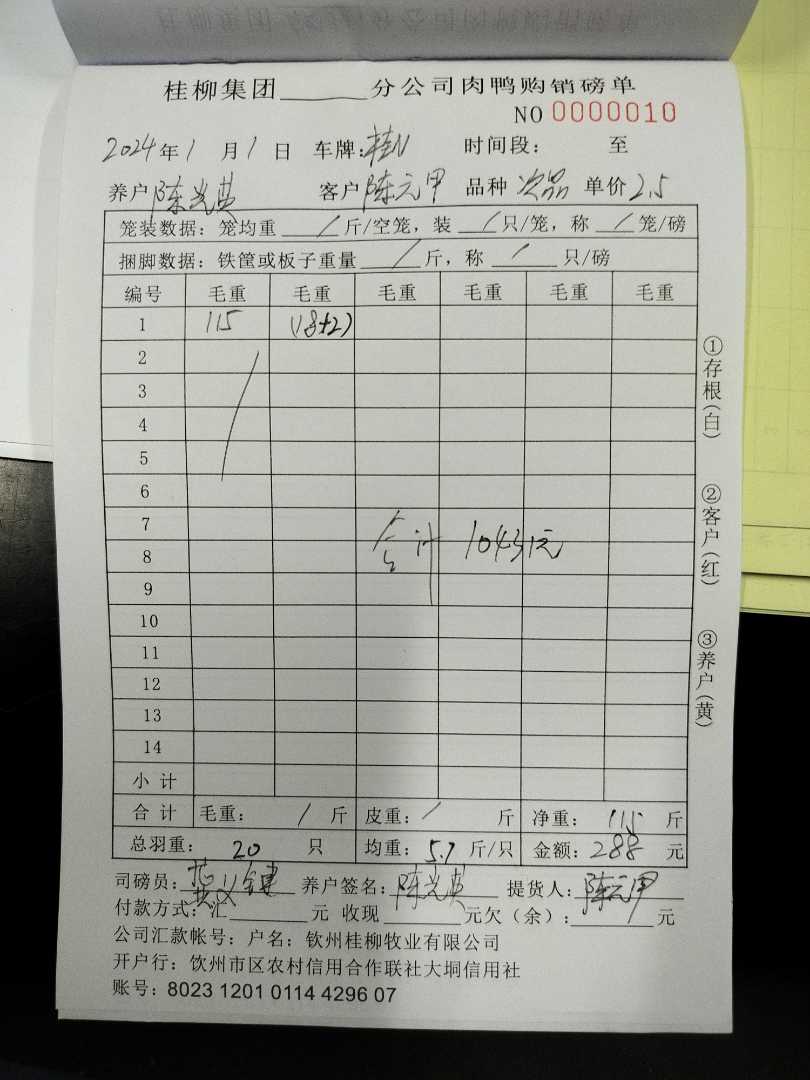 桂柳集团______分公司肉鸭购销磅单
NO 0000010
2024年1月1日 车牌:桂N 时间段: 至
养户 陈光英 客户 陈元甲 品种 次品 单价 2.5
笼装数据:笼均重 / 斤/空笼,装 / 只/笼,称 / 笼/磅
捆脚数据:铁筐或板子重量 / 斤,称 / 只/磅
编号 毛重 毛重 毛重 毛重 毛重 毛重
1 115 (18+2)
2
3
4
5
6
7
8
合计 10431元
9
10
11
12
13
14
小计
合计 毛重: / 斤 皮重: / 斤 净重: 115 斤
总羽重: 20 只 均重: 5.7 斤/只 金额: 288 元
司磅员: 养户签名: 陈光英 提货人: 陈元甲
付款方式:汇______元 收现______元欠(余):______元
公司汇款帐号:户名:钦州桂柳牧业有限公司
开户行:饮州市区农村信用合作联社大垌信用社
账号:8023 1201 0114 4296 07
①存根(白)
②客户(红)
③养户(黄)